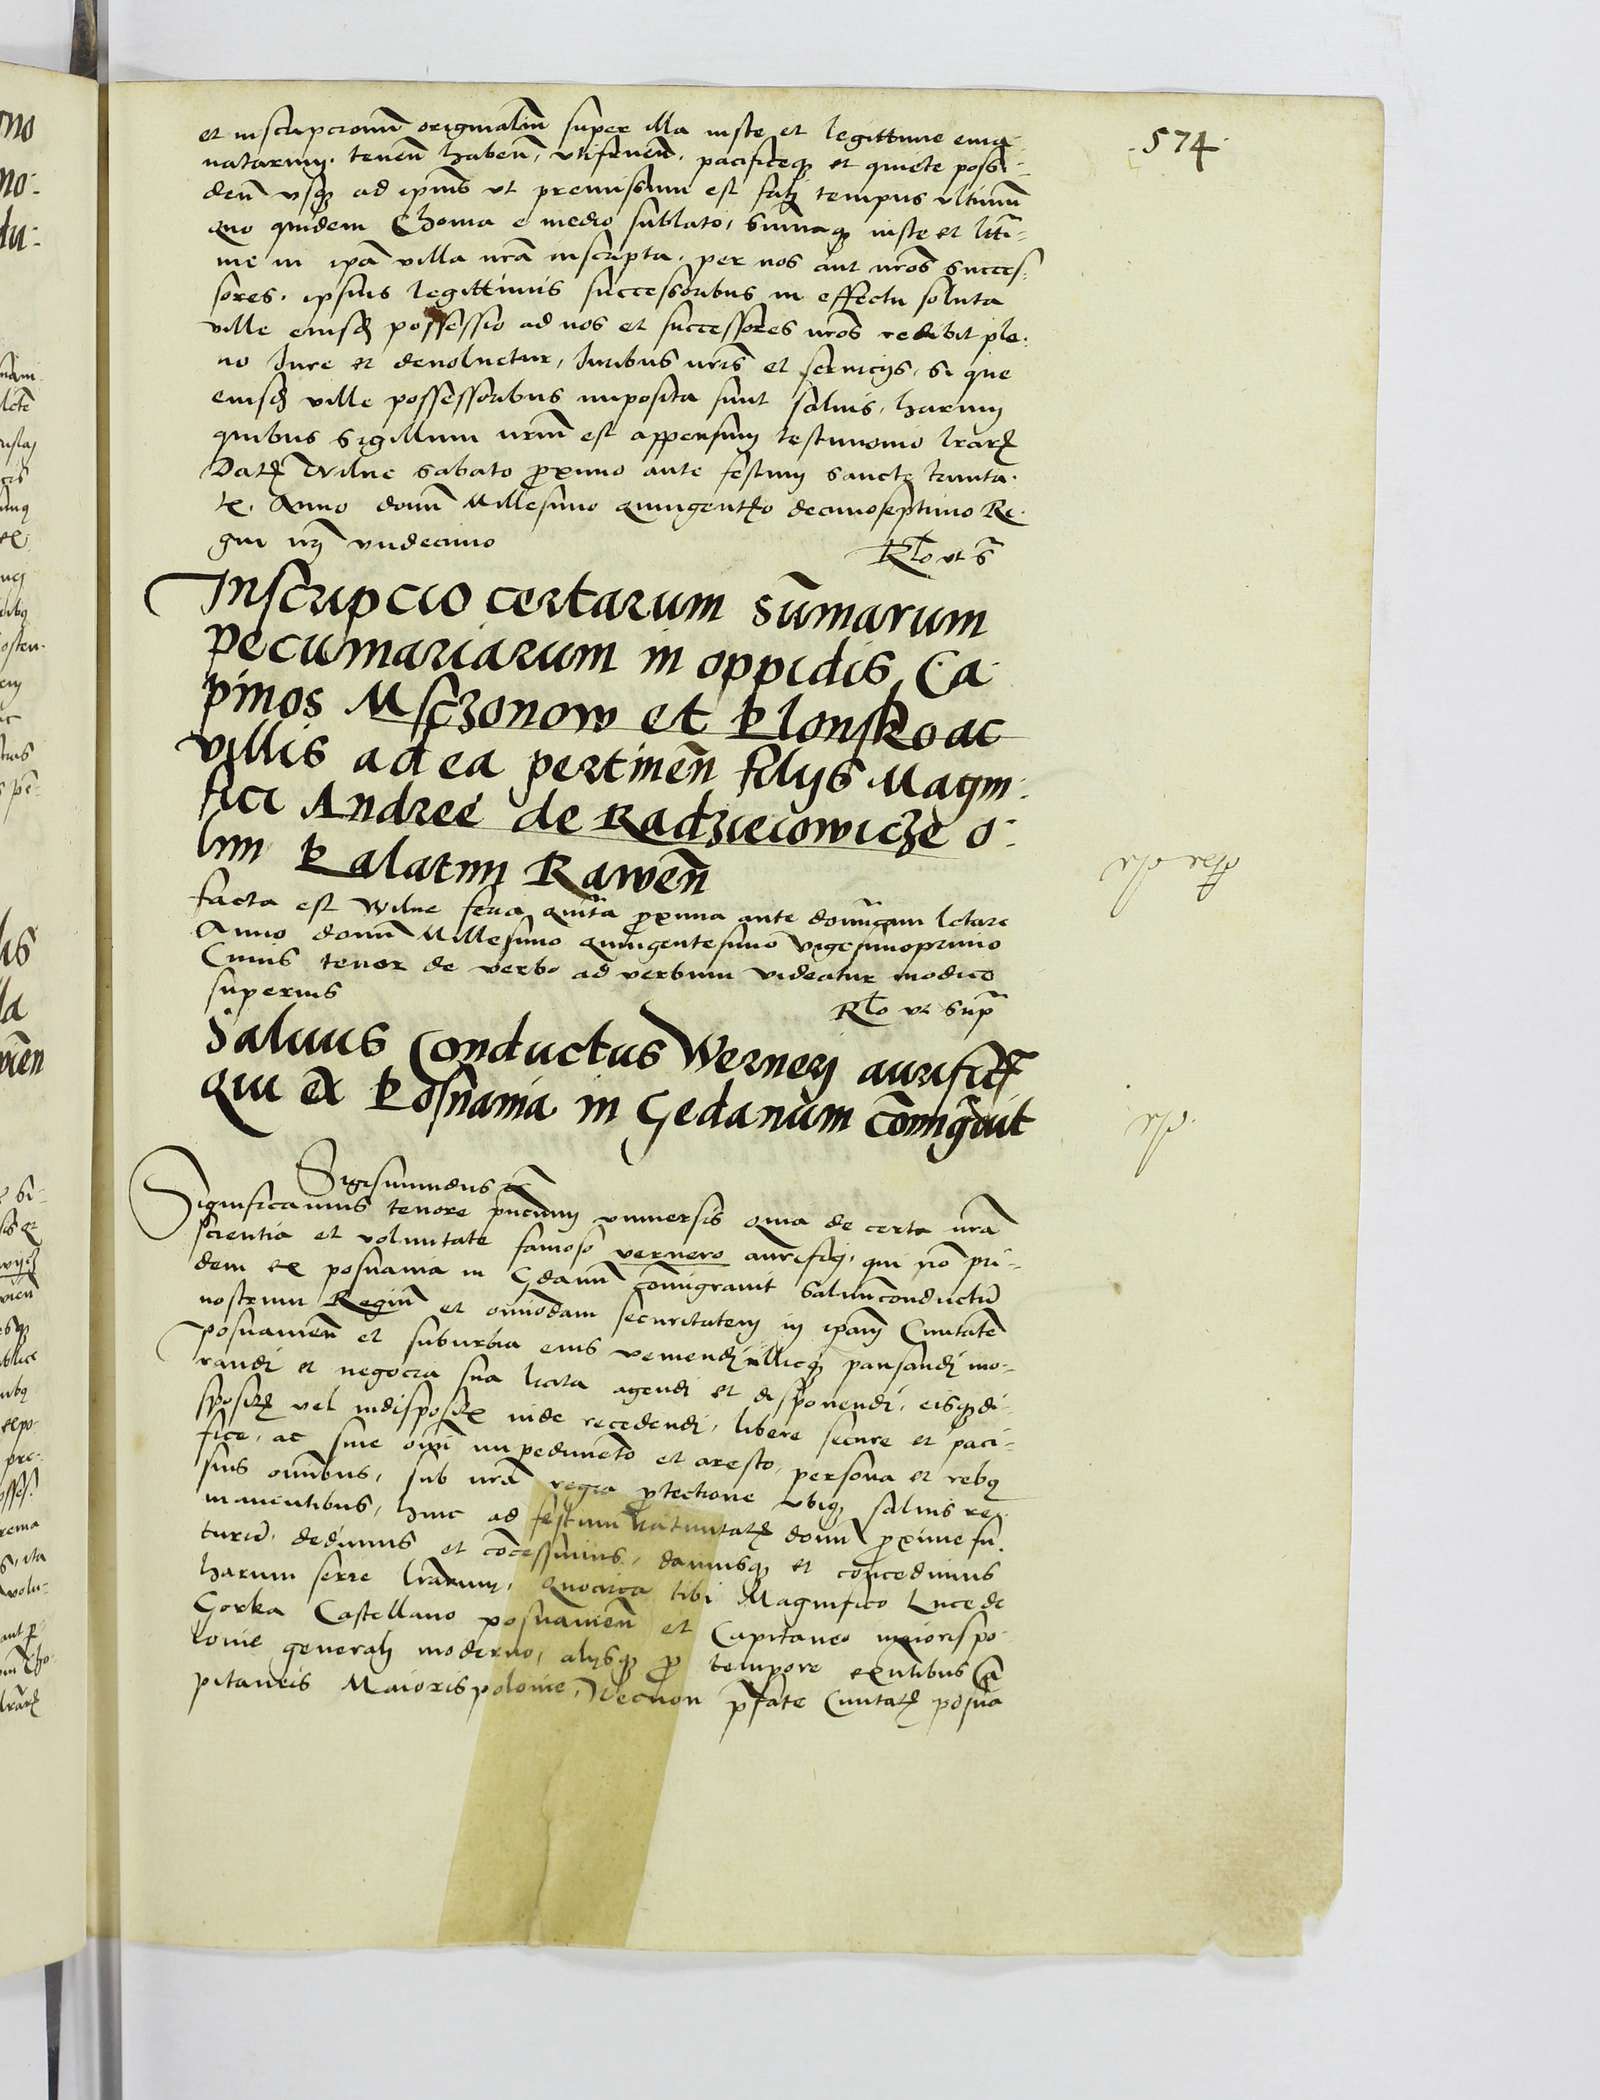 .574.
et inscripcionũ originaliũ super illa iuste et legittime ema-
natarum. tenen̄ haben̄, utifruen̄. pacificeq̢ et quiete possi-
den̄ vsq̢ ad ipius ut premissum est fati tempus ultimũ
Quo quidem Thoma e medio sublato, Summaq̢ iuste et liti-
me in ipā villa nrā inscripta. per nos aut nros succes-
sores. ipsius legittimis successoribus in effectu soluta
ville eiusd̄ possessio ad nos et successores nros redibit ple-
no Jure et deuoluetur, Iuribus nris et seruicijs, si que
eiusd̄ ville possessoribus imposita sunt saluis, harum
quibus Sigillum nrum est appensum testimonio lrarꝝ
Datꝝ Wilne Sabato proximo ante festum Sancte trinita-
tꝭ. Anno domī Millesimo quingentꝭo decimoseptimo Re-
gni nrj vndecimo
Rlo ut sᵃ
Inscripcio certarum Sum̄arum
pecumariarum in oppidis Ca
pinos Msczonow et Plonsko ac
villis ad ea pertinen̄ filijs Magni-
fici Andree de Radzieiowicze o-
lim Palatinj Rawen̄
facta est Wilne feria quīta proxima ante domīcam letare
Anno domī Millesimo quingentesimo vigesimoprimo
Cuius tenor de verbo ad verbum videatur modico
superius
Rlo ut supᵃ
Saluus Conductus Wernerj aurificꝭ
qui ex Posnania in Gedanum com̄igᵃuit
Sigismundus etc̄
Significamus tenore pn̄cium vniuersis Quia de certa nrā
scientia et voluntate famoso vernero aurifici, qui nō pri-
dem ex posnania in Gdanū com̄igrauit Saluūconductū
nostrum Regiū et om̄iodam securitatem in ipam Ciuitatē
posnanien̄ et suburbia eius veniendi illicq̢ pausandi mo-
randi et negocia sua licita agendi et disponendi, eisq̢ di-
spositꝭ vel indispositꝭ inde recedendi, libere secure et paci-
fice, ac sine om̄i impedimēto et aresto, persona et rebꝰ
suis om̄ibus, sub nrā regia protectione vbiq̢ saluis re-
manentibus, hinc ad festum natiuitatꝭ domī proxime fu-
turū. dedimus et cōcessimus, damusq̢ et concedimus
harum serie lrarum, Quocirca tibi Magnifico Luce de
Gorka Castellano posnanien̄ et Capitaneo maiorispo-
lonie generalj moderno, alijsq̢ pro tempore exn̄tibus Ca
pitaneis Maiorispolonie, Necnon pfate Ciuitatꝭ posna